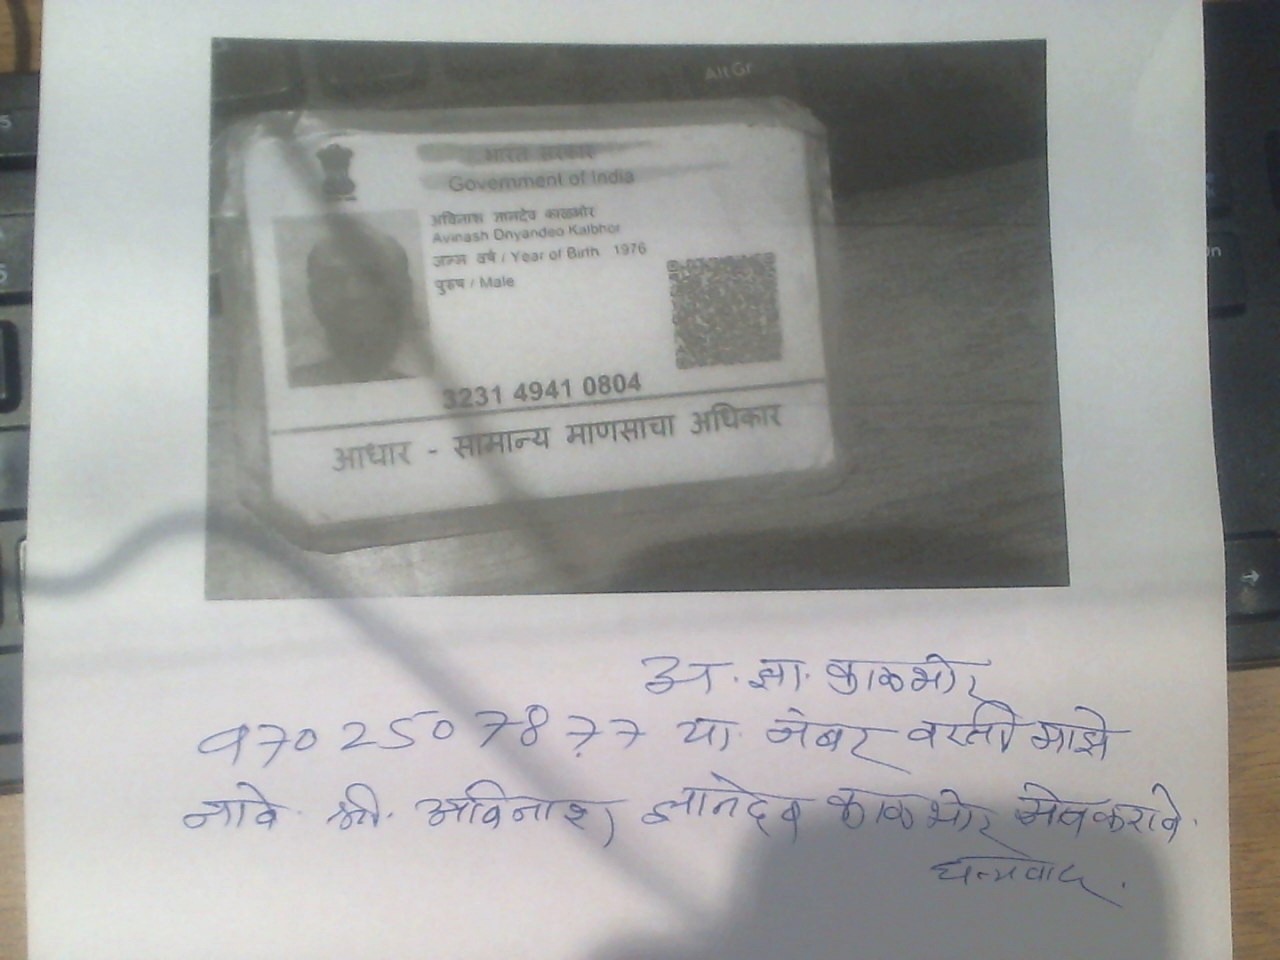 Alt Gr
भारत सरकार
Government of India
अविनाश ज्ञानदेव काळभोर
Avinash Dnyandeo Kalbhor
जन्म वर्ष / Year of Birth 1976
पुरुष / Male
3231 4941 0804
आधार - सामान्य माणसाचा अधिकार
अ. ज्ञा. काळभोर
9702507877 या नंबर वरती माझे
नावे श्री. अविनाश ज्ञानदेव काळभोर सेव करावे.
धन्यवाद.